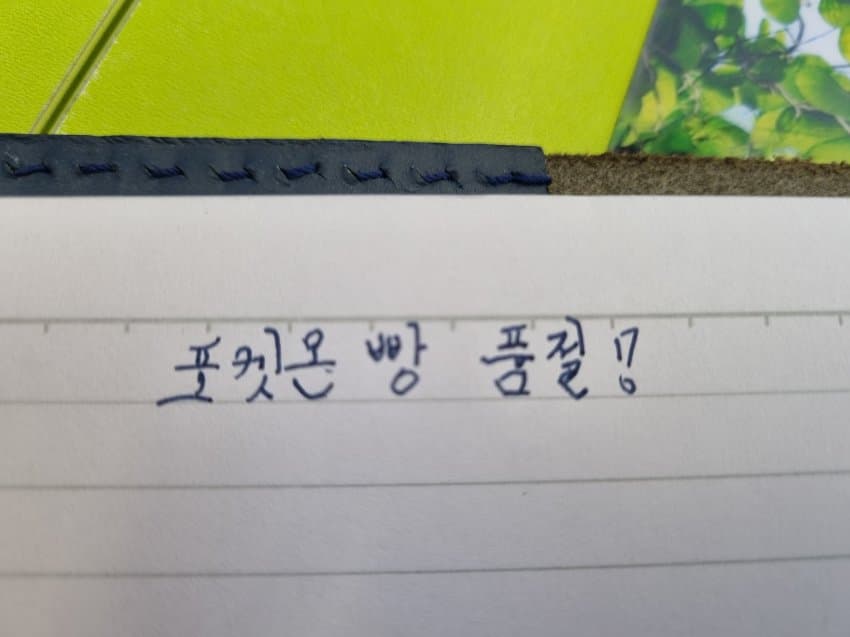 포켓몬 빵 품절!!